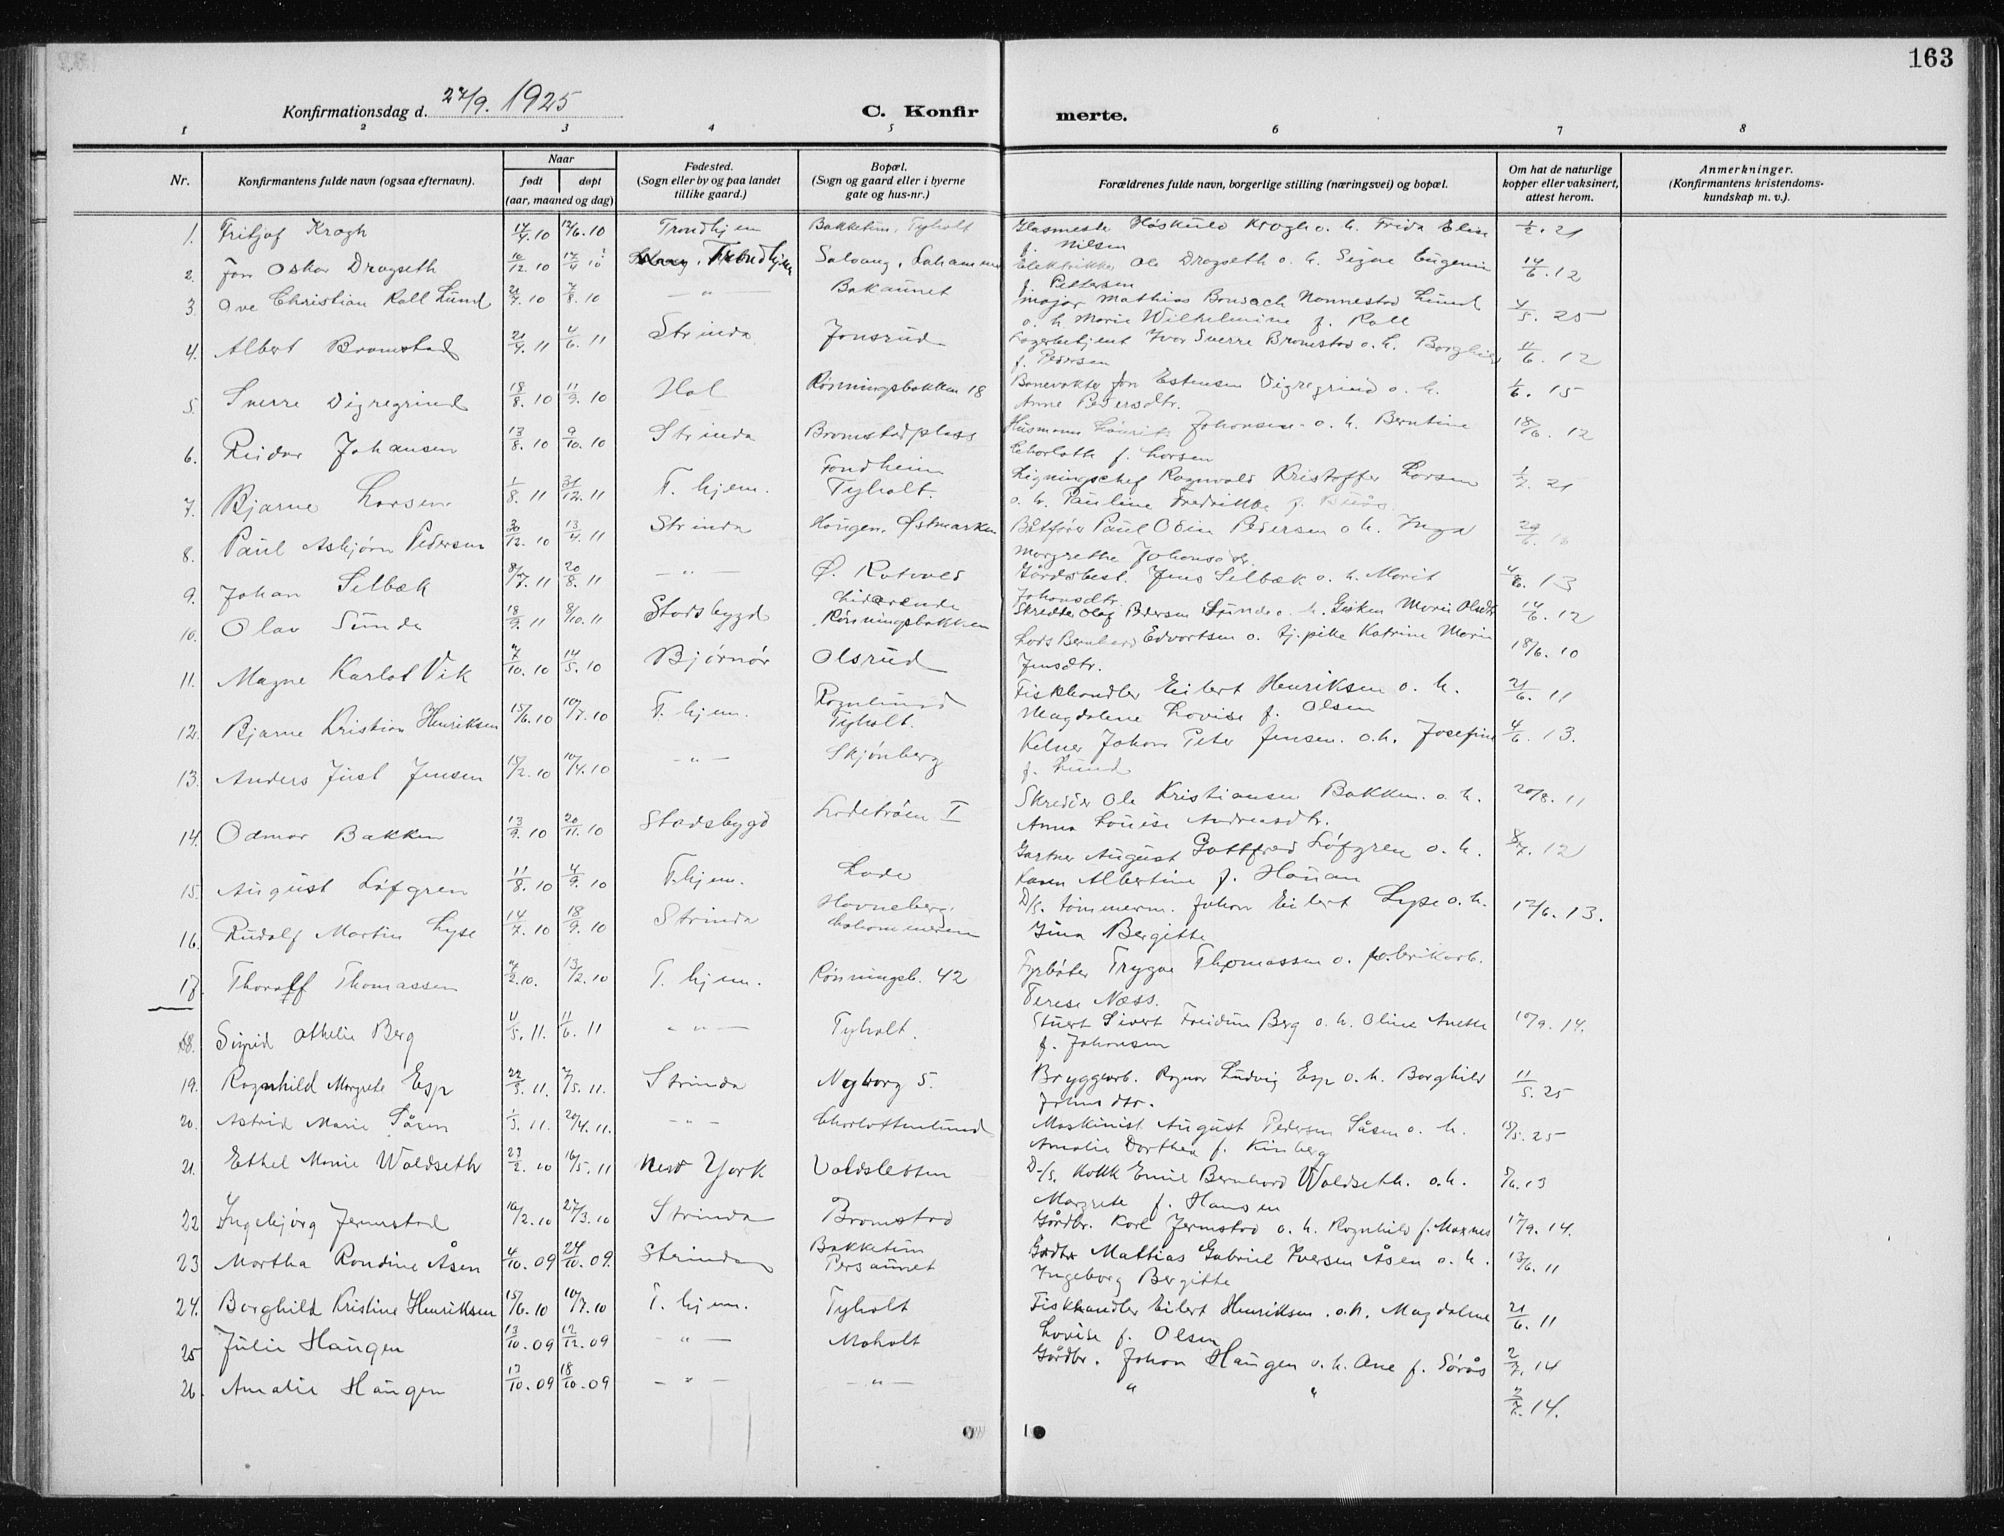 163
Konfirmationsdag d. 27/9. 1925
C. Konfirmerte.
1 2 3 4 5 6 7 8
Nr.
Konfirmantens fulde navn (ogsaa efternavn).
Naar
født døpt
(aar, maaned og dag)
Fødested.
(Sogn eller by og paa landet
tillike gaard.)
Bopæl.
(Sogn og gaard eller i byerne
gate og hus-nr.)
Forældrenes fulde navn, borgerlige stilling (næringsvei) og bopæl.
Om hat de naturlige
kopper eller vaksinert,
attest herom.
Anmerkninger.
(Konfirmantens kristendoms-
kundskap m. v.).
1. Fritjof Krogh 17/4. 10 12/6. 10 Trondhjem Bakketun, Tyholt Glasmester Høskuld Krogh o. h. Frida Elise 1/2. 21
f. Nilsen
2. Jon Oskar Dragseth 10/12. 10 17/4 10 Trondhjem Solvang, Ladehammer Elektriker Ole Dragseth o. h. Signe Eugenie 14/6. 12
f. Pettersen
3. Ove Christian Roll Lund 21/7. 10 7/8. 10 — " — Bakaunet Major Mathias Bonsach Nannestad Lund 4/5. 25
o. h. Marie Wilhelmine f. Roll
4. Albert Bromstad 21/4. 11 4/6. 11 Strinda Jonsrud Lagerbetjent Ivar Sverre Bromstad o. h. Borghild 11/6. 12
f. Pedersen
5. Sverre Digregrind 18/8. 10 11/9. 10 Hol Rønningsbakken 18 Banevokter Jon Estensen Digregrind o. h. 1/6. 15
Anne Pedersdtr.
6. Reidar Johansen 13/8. 10 9/10. 10 Strinda Bromstadplass Husmann Laurits Johansen o. h. Berntine 18/6. 12
Charlotte f. Larsen
7. Bjarne Larsen 1/8. 11 31/12. 11 T. hjem. Fondheim
Tyholt. Ligningschef Ragnvald Kristoffer Larsen 1/7. 21
o. h. Pauline Fredrikke f. Buås
8. Paul Asbjørn Pedersen 30/12. 10 13/4 11 Strinda Haugen, Østmarken Båtfører Paul Odin Pedersen o. h. Inga
Margrethe Johansdtr.
9. Johan Selbæk 8/7. 11 20/8. 11 — " — Ø. Rotvold Gårdsbest. Jens Selbæk o. h. Marit 4/6. 13
Johansdtr.
10. Olav Sunde 18/9. 11 8/10. 11 Stadsbygd Liderende
Rønningsbakken Skredder Olaf Pedersen Sunde o. h. Gjøken Marie Olsdtr 14/6. 12
11. Magne Karlot Vik 7/10. 10 14/5. 10 Bjørnør Olsrud Lods Bernhard Edvartsen o. tj. pike Katrine Marie 18/6. 10
Jensdtr.
12. Bjarne Kristian Henriksen 15/6. 10 10/7. 10 T. hjem. Rognlund
Tyholt. Fiskhandler Eilert Henriksen o. h. 21/6. 11
Magdalene Lovise f. Olsen
13. Anders Just Jensen 15/2. 10 10/4. 10 — " — Skjønberg Kelner Johan Peter Jensen. o. h. Josefine 4/6. 13.
f. Lund
14. Odmar Bakken 13/9. 10 20/11. 10 Stadsbygd Ladetrøen I Skredder Ole Kristiansen Bakken. o. h. 20/8. 11
Anna Louise Andreasdtr.
15. August Løfgren 11/8. 10 4/9. 10 T. hjem. Lade Gartner August Gottfred Løfgren o. h. 8/7. 12
Karen Albertine f. Hauan
16. Rudolf Martin Lyse 14/7. 10 18/9. 10 Strinda Havneberg.
Ladehammeren D/s. tømmerm. Johan Eilert Lyse o. h. 12/6. 13.
Gina Bergitte
17. Thoralf Thomassen 7/2. 10. 13/2. 10 T. hjem. Rønningsb. 42 Fyrbøter Trygve Thomassen o. fabrikarb.
Terese Næss.
18. Sigrid Othelie Berg 4/5. 11. 11/6. 11 — " — Tyholt. Stuert Sivert Freidum Berg o. h. Oline Anette 10/9. 14.
f. Johansen
19. Ragnhild Margrete Esp 22/3. 11. 7/5. 11. Strinda Nyborg 5. Bryggearb. Ragnar Ludvig Esp o. h. Borghild 11/5. 25
Johnsdtr.
20. Astrid Marie Såsen 1/3. 11. 20/4. 11. — " — Charlottenlund Maskinist August Pedersen Såsen o. h. 15/5. 25
Amalie Dorthea f. Kinberg
21. Ethel Marie Waldseth 23/2. 10 16/5. 11 New York Voldsletten D/s. Kokk Emil Bernhard Waldseth. o. h. 5/6. 13
Margrete f. Hansen
22 Ingebjørg Jermstad 16/2. 10 27/3. 10 Strinda Bromstad Gårdbr. Karl Jermstad o. h. Ragnhild f. Moxnes 17/9. 14.
23 Martha Rondine Åsen 4/10. 09 24/10. 09. Strinda Bakketun
Persaunet Gårdbr Mattias Gabriel Iversen Åsen o. h. 13/6. 11
Ingeborg Bergitte
24. Borghild Kristine Henriksen 15/6. 10 10/7. 10 T. hjem. Tyholt Fiskhandler Eilert Henriksen. o. h. Magdalene 21/6. 11
Lovise f. Olsen
25 Julie Haugen 13/10. 09 12/12. 09 — " — Moholt Gårdbr. Johan Haugen o. h. Ane f. Sørås 2/7. 14
26. Amalie Haugen 13/10. 09 18/10. 09 — " — — " — " " 2/7. 14.